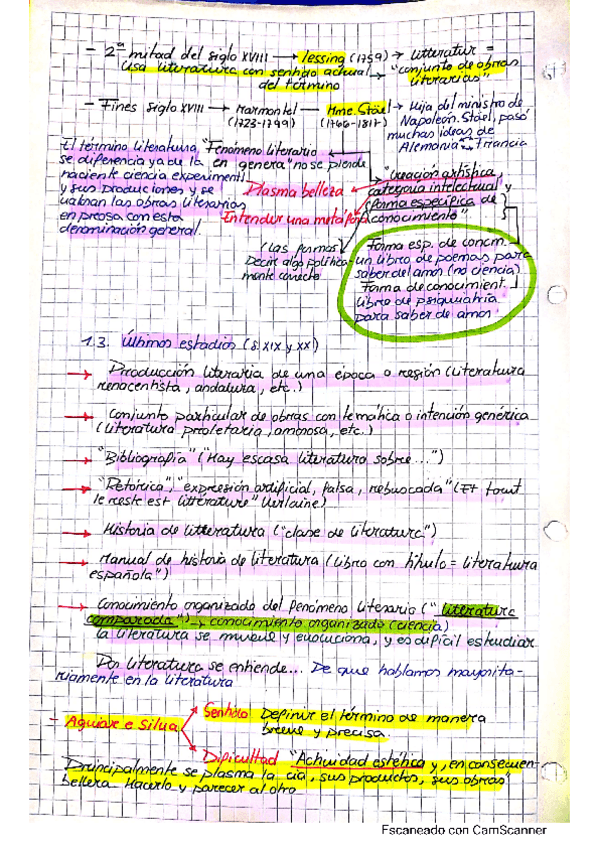 - 2ª mitad del siglo XVIII → Lessing (1759) → Litteratur =
usa literatura con sentido actual → "conjunto de obras
del término literarias"
- Fines siglo XVIII → Marmontel — Mme. Stäel → Hija del ministro de
(1723-1799) (1766-1817) Napoleón. Stäel, pasó
muchas ideas de
Alemania Francia
El término literatura, "Fenómeno literario
se diferencia ya de la en general" no se pierde
naciente ciencia experiment.
y sus producciones y se
valoran las obras literarias
en prosa con esta
denominación general.
Plasma belleza
Entender una metáfora
"creación artística,
categoría intelectual y
forma específica de
conocimiento"
(las formas)
Decir algo política-
mente correcto
Forma esp. de concm.
un libro de poemas para
saber del amor (no ciencia)
Forma de conocimient.
libro de psiquiatría
para saber de amor
1.3. Últimos estadios (s. XIX y XX)
→ Producción literaria de una época o región (literatura
renacentista, andaluza, etc.)
→ Conjunto particular de obras con temática o intención genérica
(literatura proletaria, amorosa, etc.)
→ "Bibliografía" ("Hay escasa literatura sobre...")
→ "Retórica", "expresión artificial, falsa, rebuscada" (Et tout
le reste est littérature" Verlaine)
→ Historia de litteratura ("clase de literatura")
→ Manual de historia de literatura (libro con título = literatura
española")
→ Conocimiento organizado del fenómeno literario ("literatura
comparada") → conocimiento organizado (ciencia)
La literatura se mueve y evoluciona, y es difícil estudiar
Por literatura se entiende... De que hablamos mayorita-
riamente en la literatura
- Aguiar e Silva
Sentido Definir el término de manera
breve y precisa.
Dificultad "Actividad estética y, en consecuen-
Principalmente se plasma la cia, sus productos, sus obras"
belleza. Hacerlo y parecer al otro
Escaneado con CamScanner